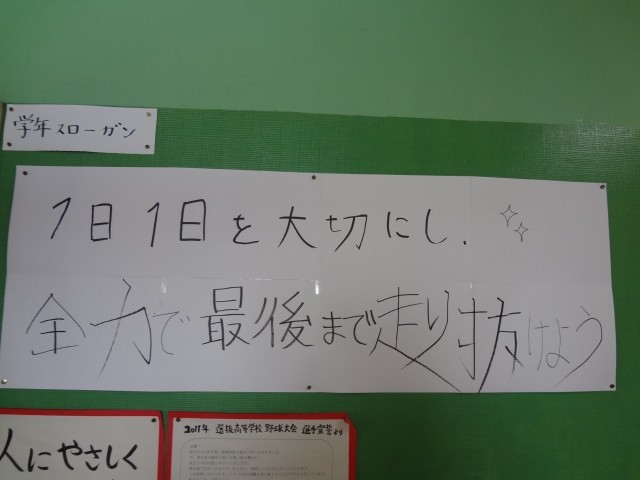 学年スローガン
1日1日を大切にし、
全力で最後まで走り抜けよう
人にやさしく
2011年 選抜高等学校野球大会 選手宣誓より